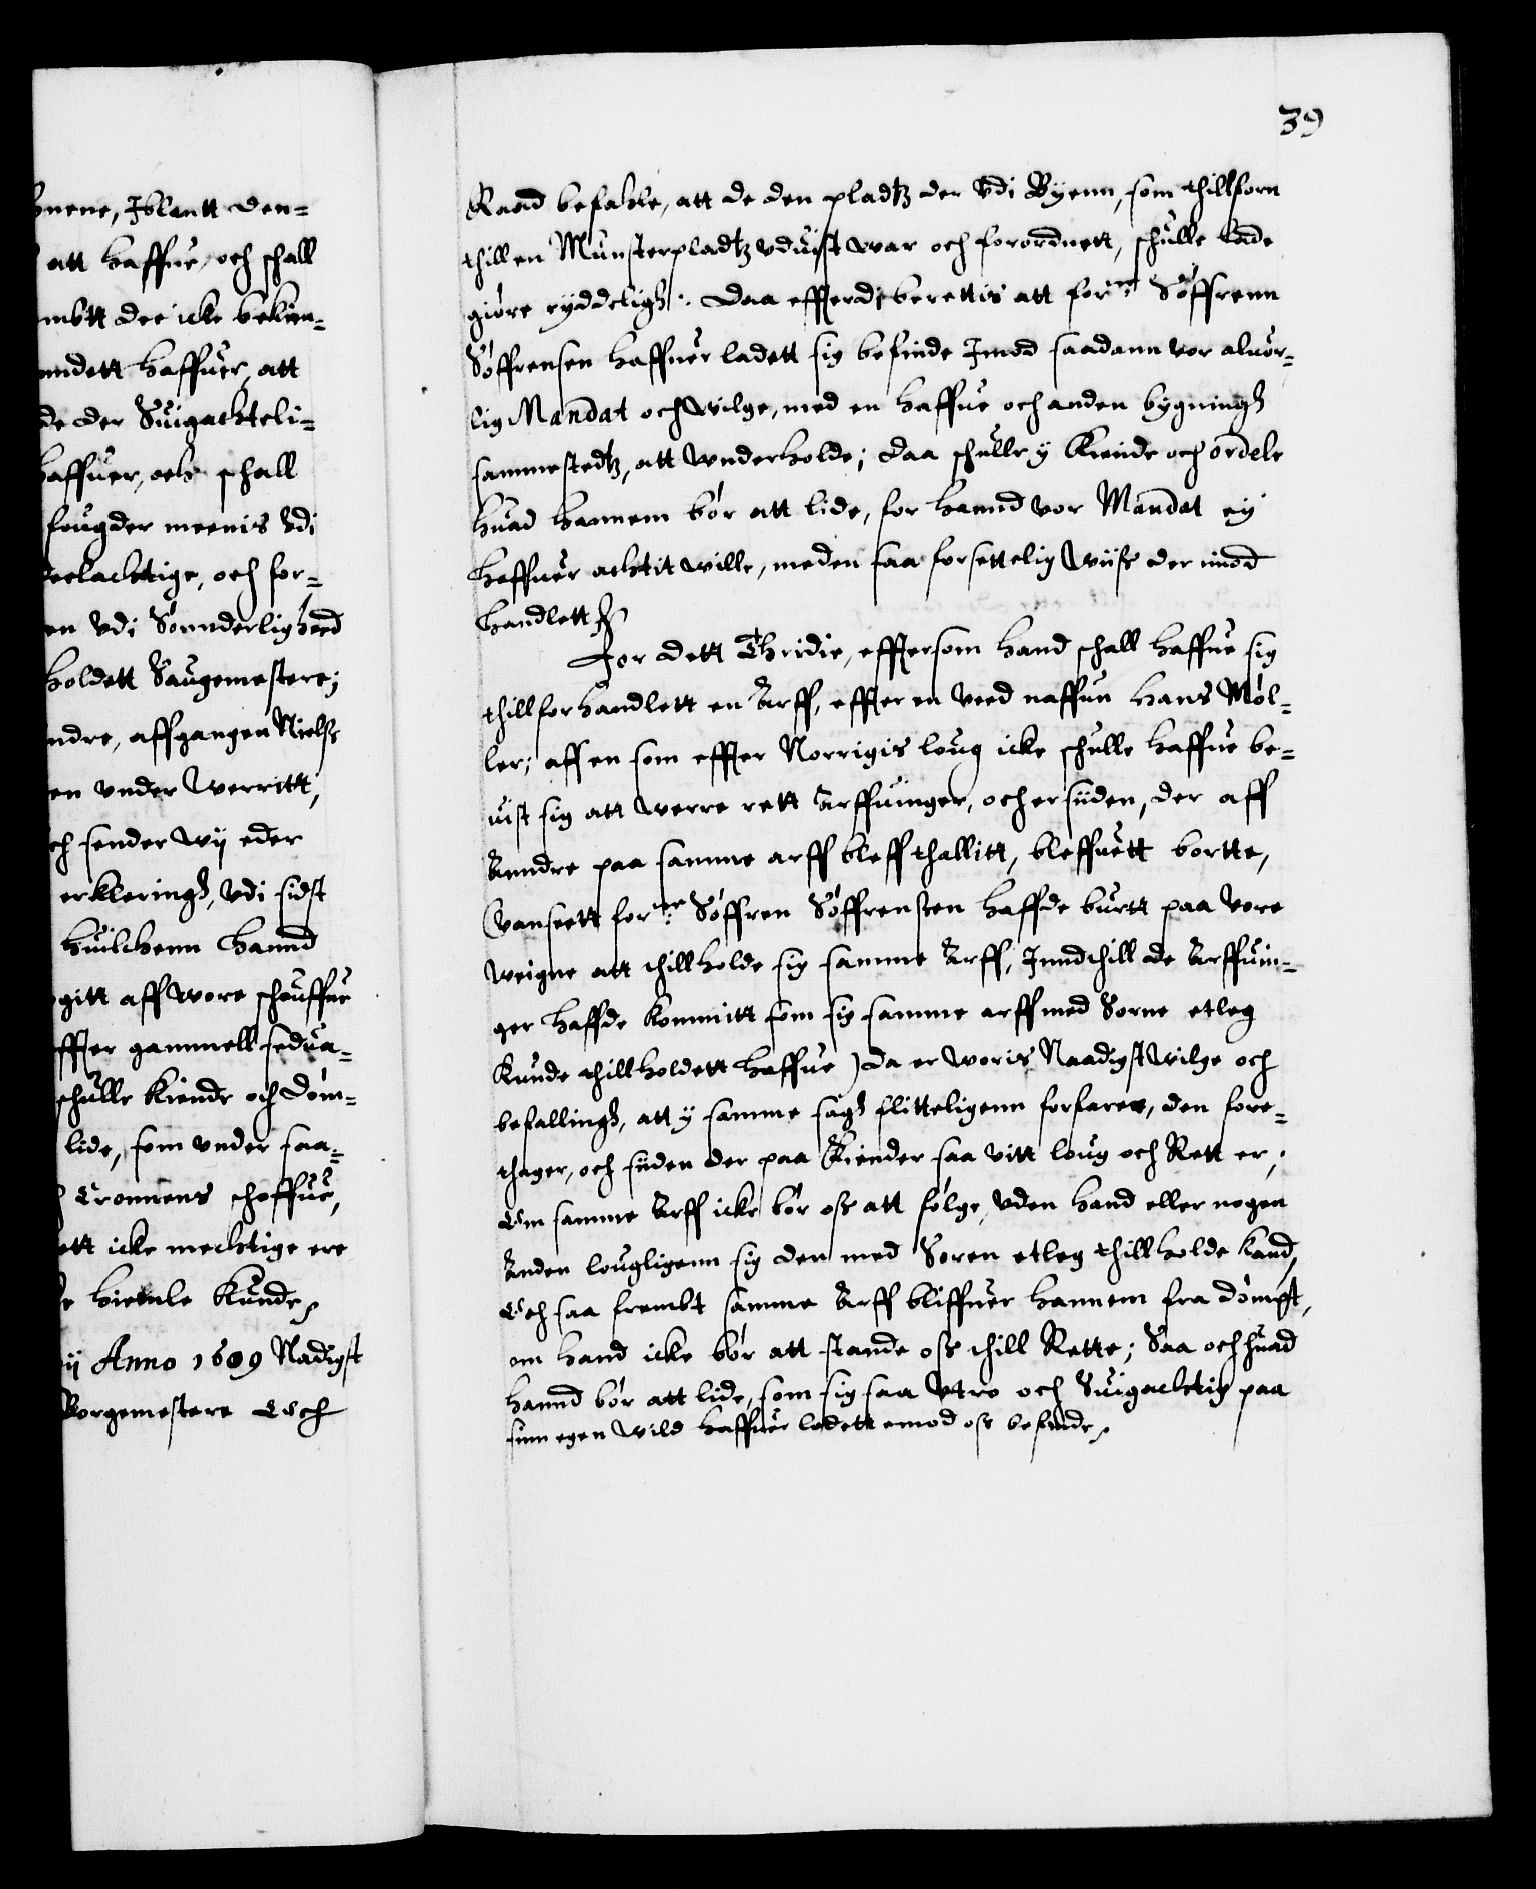 bnene, Iblantt den-
att haffue, och schall
mbtt der icke bekien-
undett haffuer, att
de der Suigachteli-
haffuer, och schall
fougder meenis Vdi
deelachtige, och for-
en Vdi Sønnderlighed
holdett Saugemestere;
ndre, affgangen Nielss
en vnder Werritt,
ch sender Wij eder
erkleringh, Vdi sidst
huilchenn hannd
gitt aff Wore schouffue
effter gammell sedua-
schulle Kiende och Døm-
lide, som vnder saa-
Cronnens schoffue,
ett icke mechtige ere
hiemle Kunde,
ij Anno 1609 Nadigst
Borgemestere Och
39
Raad befahle, att de den pladtz der Vdi Byenn, som thillforn
thill en Munsterpladtz vduist war och forordnett, schulle lade
giøre ryddeligh. Daa effterdj berettis att forne Søffrenn
Søffrensen haffuer ladett sig befinde Imod saadann vor aluor-
lig Mandat och Wilge, med en haffue och anden bygningh
sammestedtz, att Vnderholde; Daa schulle y Kiende och ordele
huad hannem bør att lide, for hannd vor Mandat ey
haffuer achtit wille, meden saa forsettelig Wiiss der imod
handlett
For dett Thridie, efftersom hand schall haffue sig
thillforhandlett en Arff, effter en Veed naffun Hans Møl-
ler; aff en som effter Norrigis loug icke schulle haffue be-
uist sig att werre rett Arffuinger, och er siiden, der aff
Anndre paa samme arff bleff thallitt, bleffuett bortte,
(Vanseett forne Søffren Søffrensen haffde burtt paa Vore
weigne att thillholde sig samme Arff, Inndthill de Arffuin-
ger haffde kommitt som sig samme arff med Sorne etleg
Kunde thillholdett haffue) da er Woris Naadigst Wilge och
befallingh, att y samme sagh flitteligenn forfarer, den fore-
thager, och siiden der paa Kiender saa vitt loug och Rett er,
Om samme Arff icke bør oss att følge, vden hand eller nogen
Anden lougligenn sig den med Soren etleg thillholde kand,
Och saa frembt samme Arff bliffuer hannem fra dømpt,
om hand icke bør att stande oss thill Rette; Saa och huad
hannd bør att lide, som sig saa Vtro och Suigachtig paa
sinn egen Wild haffuer ladett emod oss befinde,